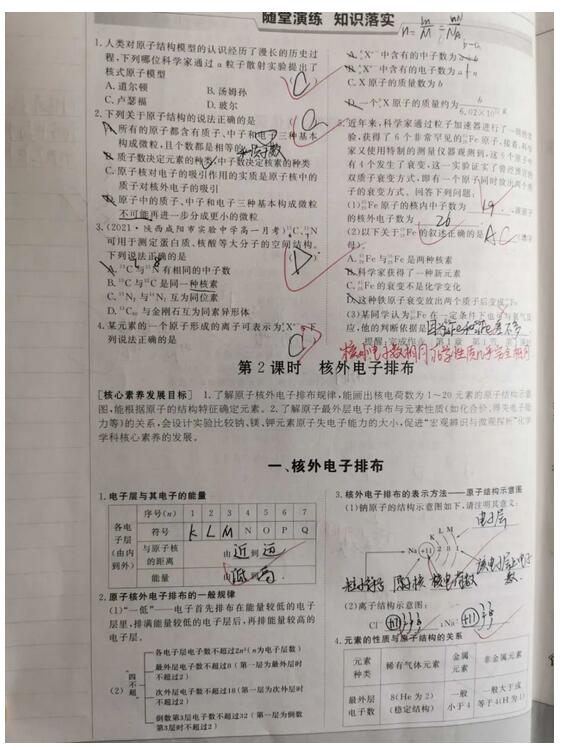 随堂演练 知识落实
n=m/M=N/NA
1.人类对原子结构模型的认识经历了漫长的历史过
程,下列哪位科学家通过α粒子散射实验提出了
核式原子模型
C
A.道尔顿 B.汤姆孙
C.卢瑟福 D.玻尔
2.下列关于原子结构的说法正确的是
C
A.所有的原子都含有质子、中子和电子三种基本
构成微粒,且个数都是相等的
B.质子数决定元素的种类,中子数决定核素的种类
C.原子核对电子的吸引作用的实质是原子核中的
质子对核外电子的吸引
D.原子中的质子、中子和电子三种基本构成微粒
不可能再进一步分成更小的微粒
3.(2021·陕西咸阳市实验中学高一月考)¹³C、¹⁵N
可用于测定蛋白质、核酸等大分子的空间结构。
下列说法正确的是
D
A.¹³C与¹⁵N有相同的中子数
B.¹³C与¹²C是同一种核素
C.¹⁵N₂与¹⁴N₂互为同位素
D.¹³C₆₀与金刚石互为同素异形体
4.某元素的一个原子形成的离子可表示为 Xⁿ⁻,下
列说法正确的是
C
A. Xⁿ⁻中含有的中子数为
B. Xⁿ⁻中含有的电子数为
C.X原子的质量数为b
D.一个X原子的质量约为 b/6.02×10²³
5.近年来,科学家通过粒子加速器进行了
验,获得了6个非常罕见的 Fe原子,接着,科学
家又使用特制的测量仪器观测到,这6个原子中
有4个发生了衰变,这一实验证实了曾经预言的
双质子衰变方式,即有一个原子同时放出两个质
子的衰变方式。回答下列问题:
(1) Fe原子的核内中子数为 19
的核外电子数为 26
(2)以下关于 Fe的叙述正确的是 AC
A. Fe与 Fe是两种核素
B.科学家获得了一种新元素
C. Fe的衰变不是化学变化
D.这种铁原子衰变放出两个质子后变成
(3)某同学认为 Fe在一定条件下也能与氯气反
应,他的判断依据是
核外电子数相同,化学性质几乎完全相同
第2课时 核外电子排布
[核心素养发展目标] 1.了解原子核外电子排布规律,能画出核电荷数为1~20元素的原子结构示意
图,能根据原子的结构特征确定元素。2.了解原子最外层电子排布与元素性质(如化合价、得失电子能
力等)的关系,会设计实验比较钠、镁、钾元素原子失电子能力的大小,促进“宏观辨识与微观探析”化学
学科核心素养的发展。
一、核外电子排布
1.电子层与其电子的能量
各电子层(由内到外)
序号(n) 1 2 3 4 5 6 7
符号 K L M N O P Q
与原子核的距离 由近到远
能量 由低到高
2.原子核外电子排布的一般规律
(1)“一低”——电子首先排布在能量较低的电子
层里,排满能量较低的电子层后,再排能量较高的
电子层。
(2)四不超
各电子层电子数不超过2n²(n为电子层数)
最外层电子数不超过8(第一层为最外层时
不超过2)
次外层电子数不超过18(第一层为次外层时
不超过2)
倒数第3层电子数不超过32(第一层为倒数
第3层时不超过2)
3.核外电子排布的表示方法——原子结构示意图
(1)钠原子的结构示意图如下,请注明其意义:
电子层
K L M
Na +11 2 8 1
原子核 核电荷数
(2)离子结构示意图:
Cl⁻ ;Na⁺ +11
4.元素的性质与原子结构的关系
元素种类 稀有气体元素 金属元素 非金属元素
最外层电子数 8(He为2)(稳定结构) 一般小于4 一般大于或等于4(H为1)